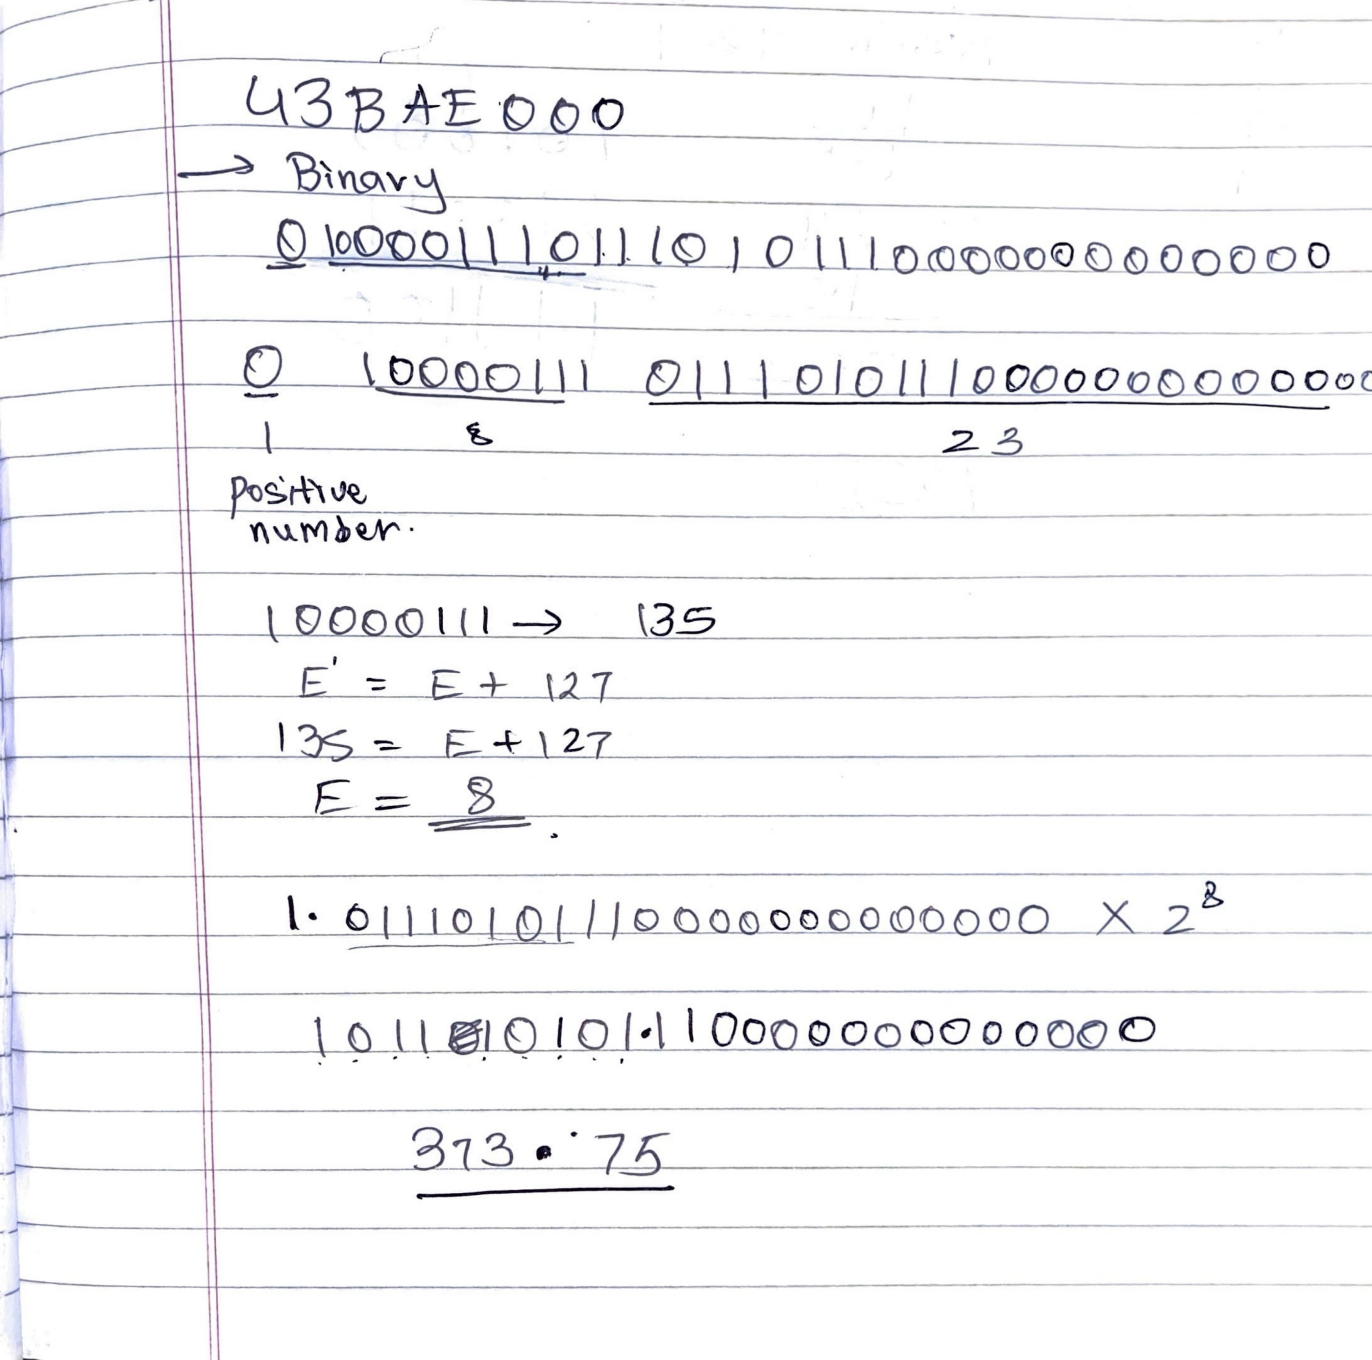 43BAE000
→ Binary
01000011101110101110000000000000
0 10000111 01110101110000000000000
1 8 23
positive
number.
10000111 → 135
E' = E + 127
135 = E + 127
E = 8
1. 01110101110000000000000 × 2⁸
101110101.110000000000000
373.75